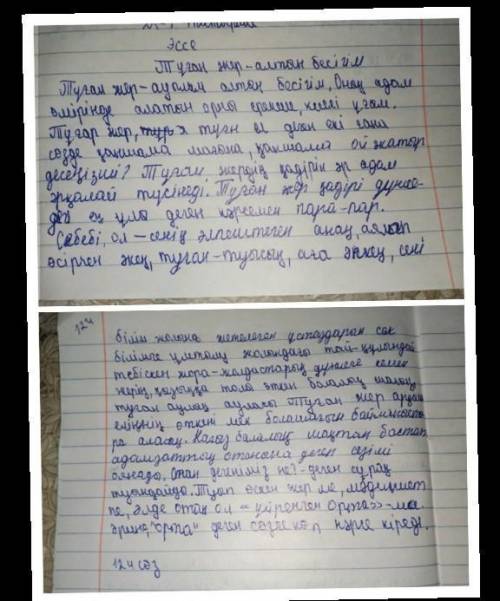 Эссе
Туған жер-алтын бесігім
Туған жер-ауылым алтын бесігім. Оның адам
өмірінде алатын орны ерекше, киелі ұғым.
Туған жер, туған ел деген екі ғана
сөзде қаншама мағына, қаншама ой жатыр
десеңізші? Туған жердің қадірін әр адам
әрқалай түсінеді. Туған жер қадірі дүние-
дегі ең ұлы деген нәрсемен пара-пар.
Себебі, ол-сенің әлпештеген анаң, аялап
өсірген әкең, туған-туысың, аға әпкең, сені
124
білім жолына жетелеген ұстаздарың сәк
білімге ұмтылу жолындағы тай-құлындай
тебіскен жора-жолдастарың дүниеге келген
жерің, қызыққа толы өткен балалық шағың,
туған ауылың ауласы Туған жер арқылы
еліңнің өткені мен болашағын байланыста-
ра аласың. Нағыз балалық шақтан бастап
адамзаттың отанына деген сезімі
оянады. Отан дегеніміз не?-деген сұрақ
туындайды. Туып өскен жер ме, мәдениет
пе, әлде отан ол - үйренген орта>>-ма.
әрине, "орта" деген сөзге көп нәрсе кіреді.
124 сөз